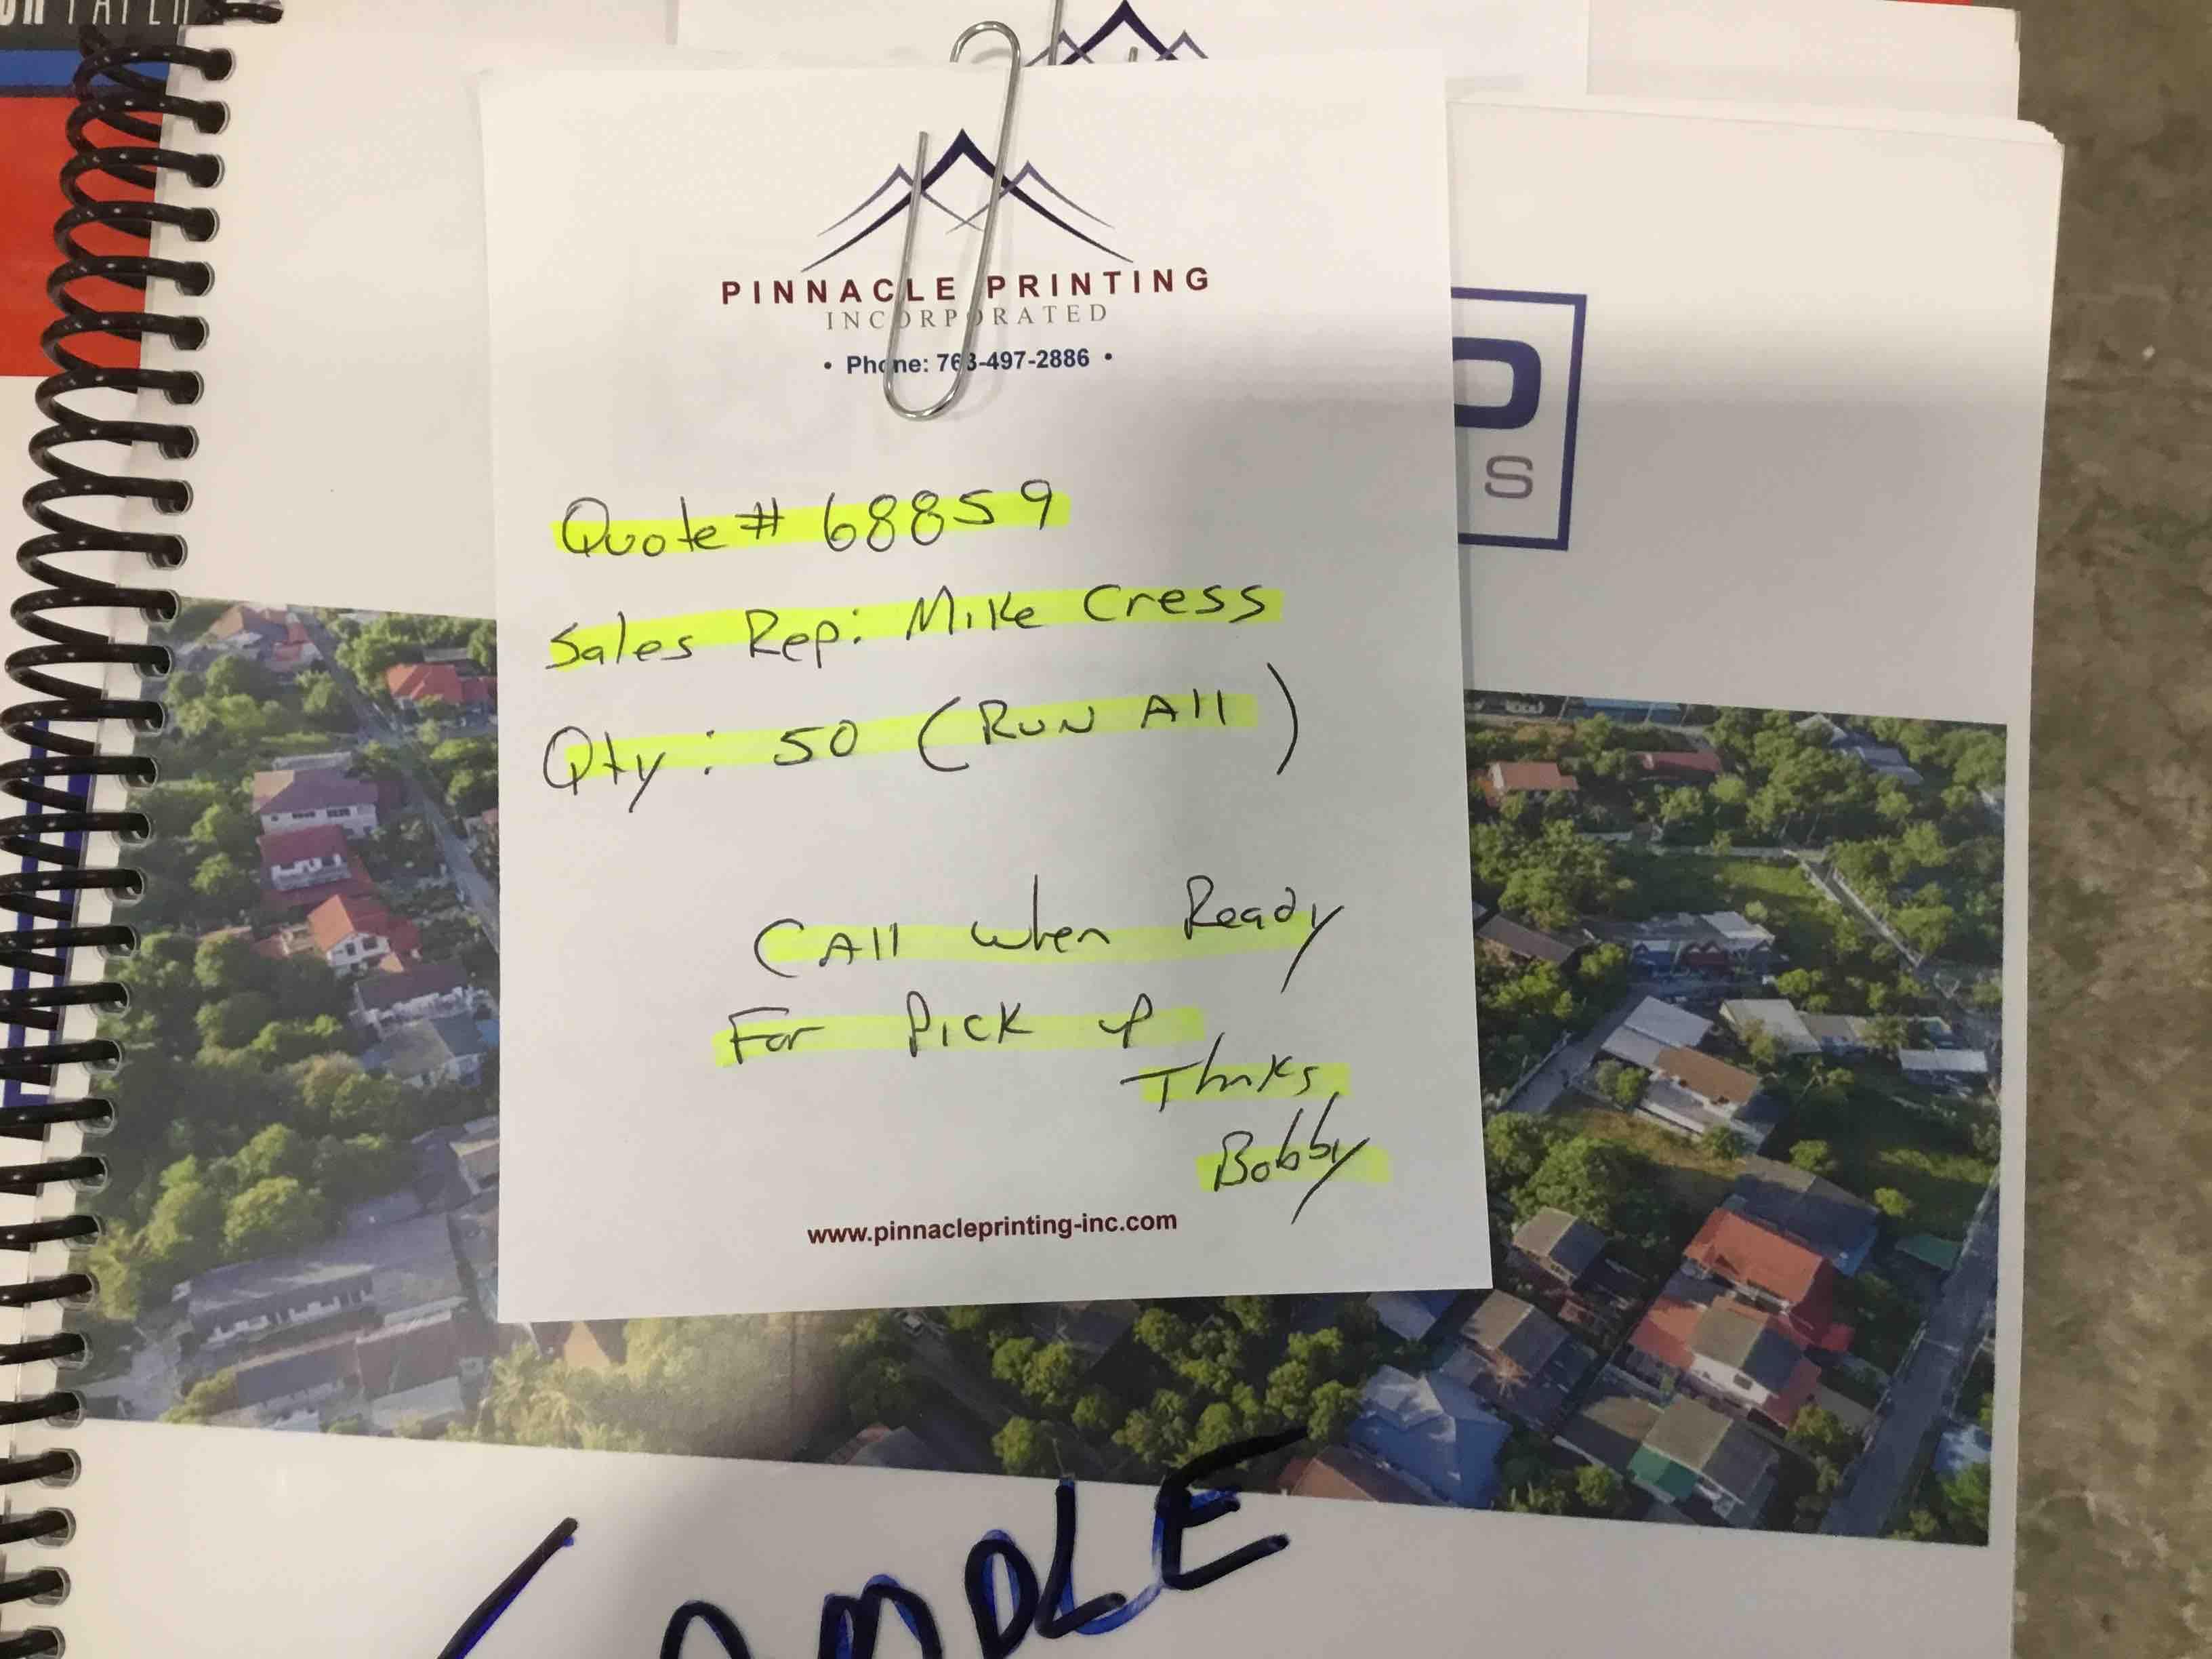 PINNACLE PRINTING
INCORPORATED
• Phone: 763-497-2886 •
Quote # 68859
Sales Rep: Mike Cress
Qty: 50 (RUN All)
CAll when Ready
For Pick up
Thnks
Bobby
www.pinnacleprinting-inc.com
P
S
SAMPLE